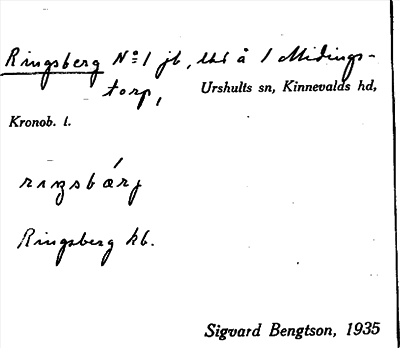 Ringsberg No 1 jb, lht å 1 Midings-
torp, Urshults sn, Kinnevalds hd,
Kronob. l.
rıŋsbærj
Ringsberg kb.
Sigvard Bengtson, 1935